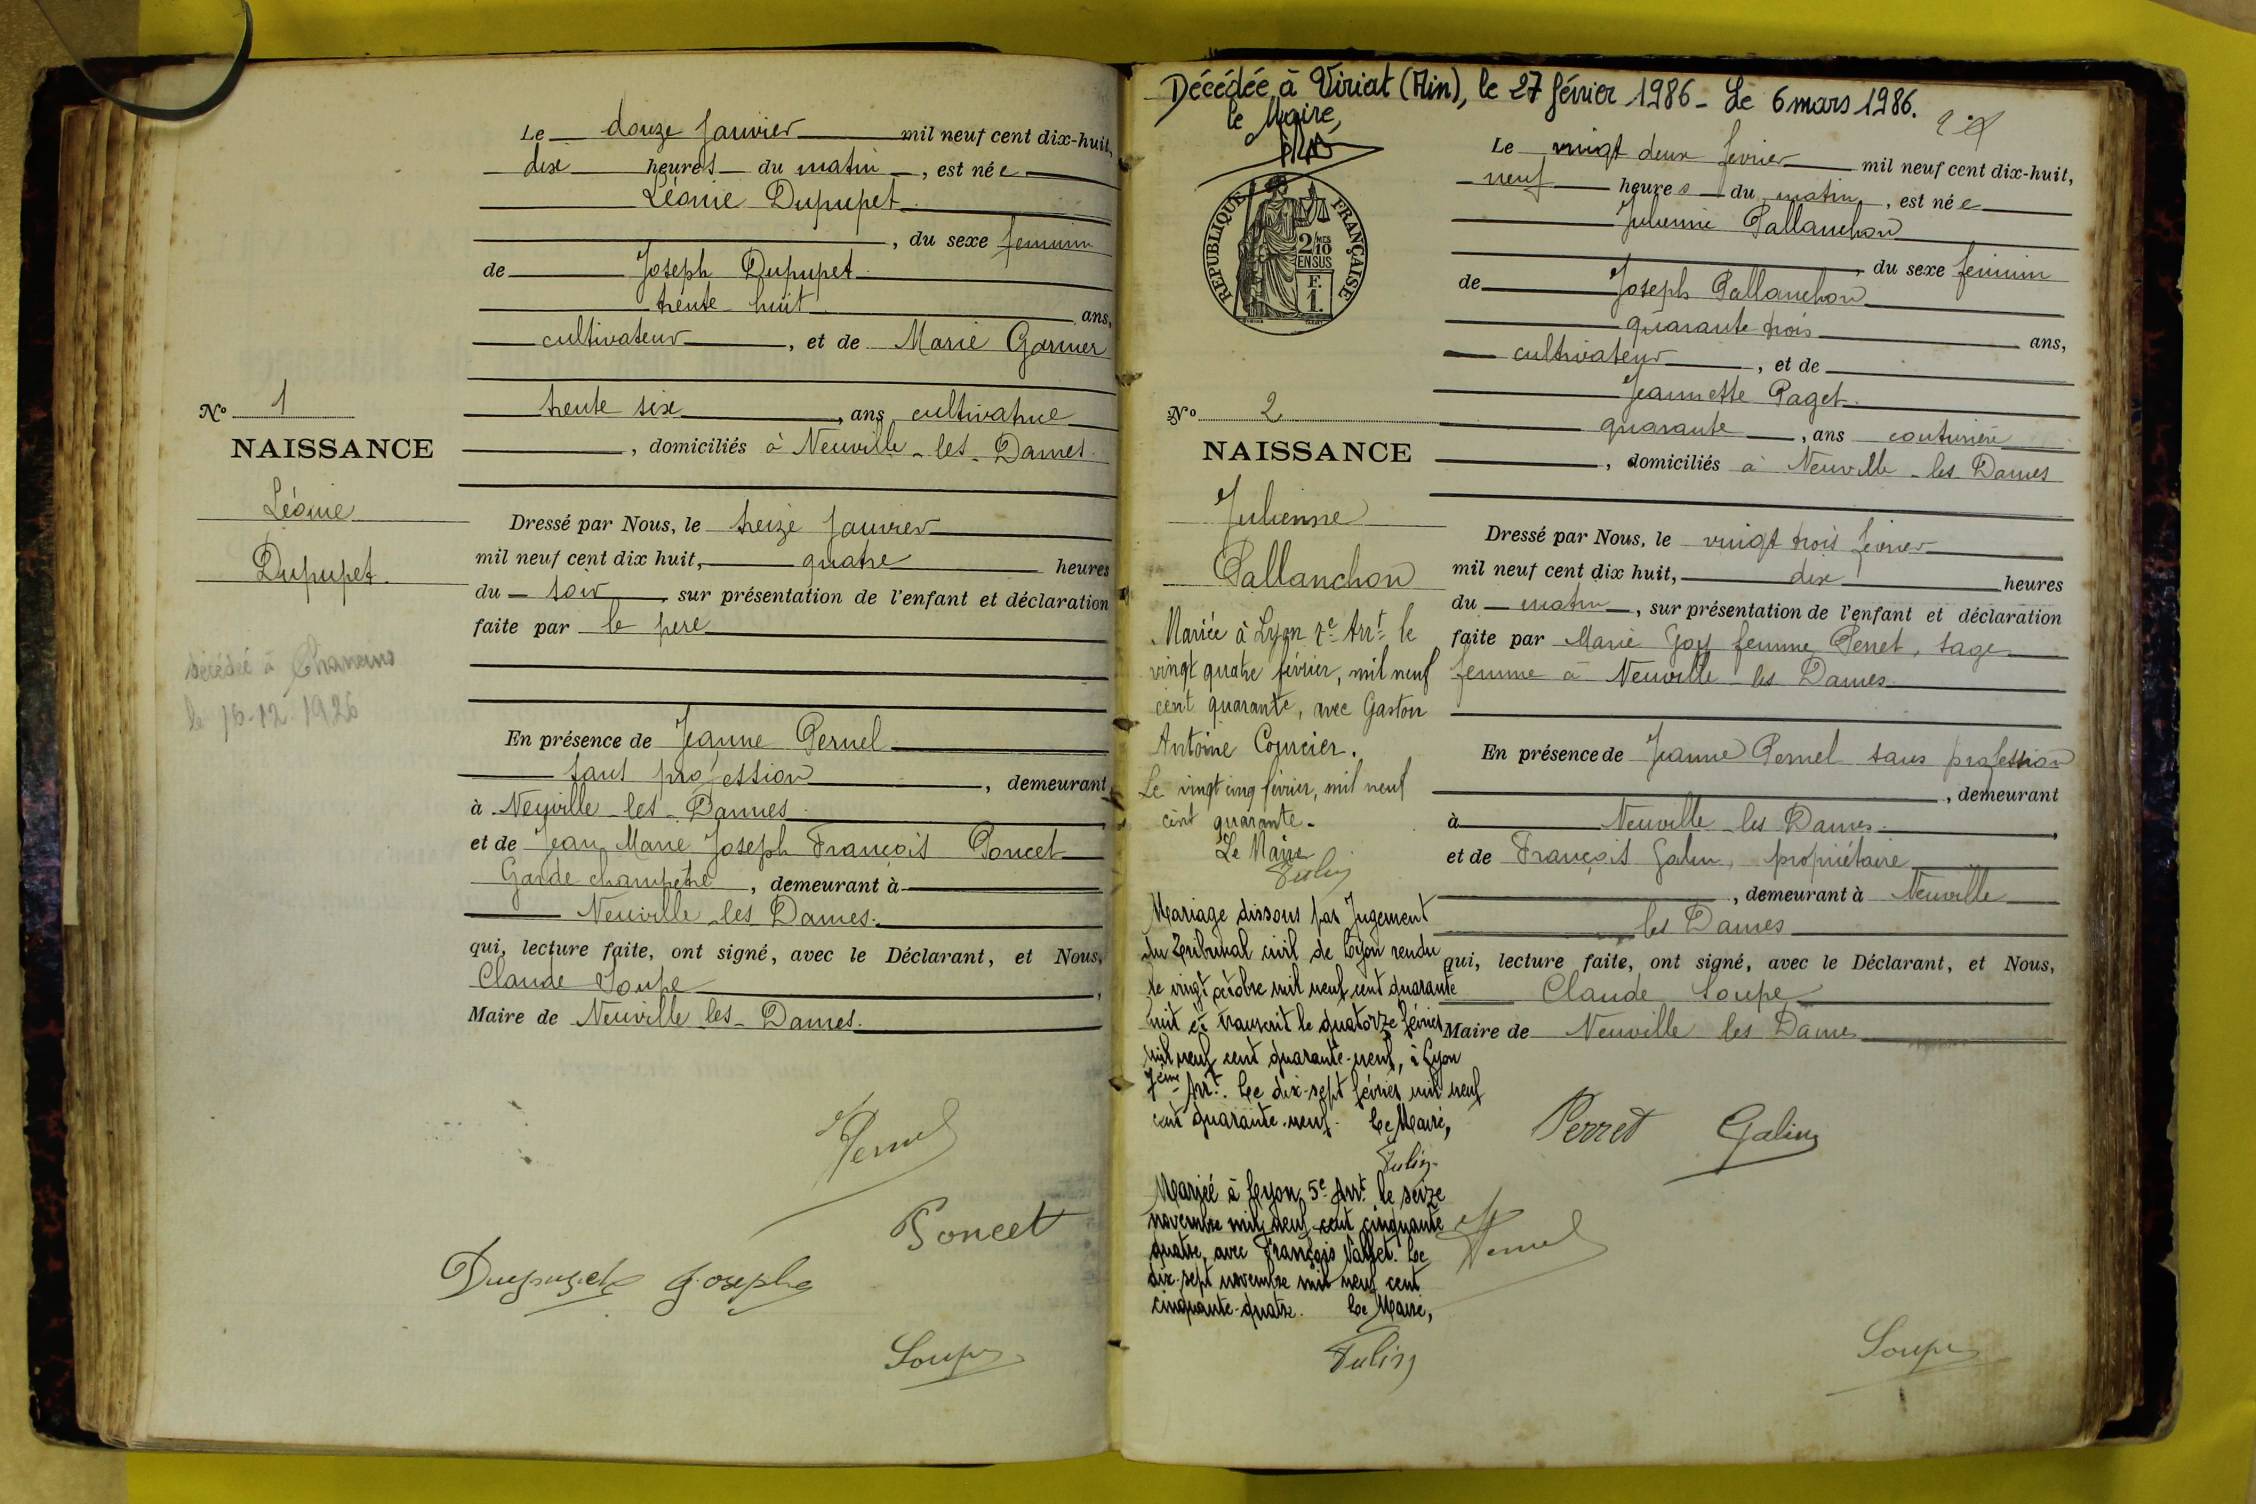 Le douze Janvier mil neuf cent dix-huit,
dix heures du matin, est née
Léonie Dupupet
, du sexe feminin
de Joseph Dupupet
trente huit ans,
cultivateur, et de Marie Garnier
trente six, ans cultivatrice
, domiciliés à Neuville-les-Dames.
Nº 1
NAISSANCE
Léonie
Dupupet
décédée à
le 1926
Dressé par Nous, le treize Janvier
mil neuf cent dix huit, quatre heures
du soir, sur présentation de l'enfant et déclaration
faite par le père
En présence de Jeanne Pernel
sans profession, demeurant
à Neuville-les-Dames
et de Jean Marie Joseph François Poncet
Garde champetre, demeurant à
Neuville-les Dames.
qui, lecture faite, ont signé, avec le Déclarant, et Nous,
Claude Soupe,
Maire de Neuville les-Dames.
Pernel
Poncet
Dupupet Joseph
Soupe
Décédée à Viriat (Ain), le 27 février 1986 - Le 6 mars 1986.
le Maire,
RÉPUBLIQUE FRANÇAISE
2/10
EN SUS
F.
1.
Le vingt deux fevrier mil neuf cent dix-huit,
neuf heures du matin, est née
Julienne Pallanchon
, du sexe féminin
de Joseph Pallanchon
quarante trois ans,
cultivateur, et de
Jeannette Paget
quarante, ans couturière
, domiciliés à Neuville-les Dames
Nº 2
NAISSANCE
Julienne
Pallanchon
Dressé par Nous, le vingt trois février
mil neuf cent dix huit, dix heures
du matin, sur présentation de l'enfant et déclaration
faite par Marie Goy femme Perret, sage
femme à Neuville les Dames
En présence de Jeanne Pernel sans profession
, demeurant
à Neuville les Dames.,
et de François Galin, propriétaire
, demeurant à Neuville
les Dames
qui, lecture faite, ont signé, avec le Déclarant, et Nous,
Claude Soupe
Maire de Neuville les Dames
Mariée à Lyon 7e Arrt le
vingt quatre février, mil neuf
cent quarante, avec Gaston
Antoine Courcier.
Le vingt cinq février, mil neuf
cent quarante.
Le Maire
Tulin
Mariage dissous par Jugement
du Tribunal civil de Lyon rendu
le vingt octobre mil neuf cent quarante
huit et transcrit le quatorze février
mil neuf cent quarante-neuf, à Lyon
7ème Arrt. Le dix-sept février mil neuf
cent quarante-neuf. Le Maire,
Tulin
Mariée à Lyon 5e Arrt le seize
novembre mil neuf cent cinquante
quatre, avec François Vallet. Le
dix-sept novembre mil neuf cent
cinquante-quatre. Le Maire,
Tulin
Perret Galin
Pernel
Soupe